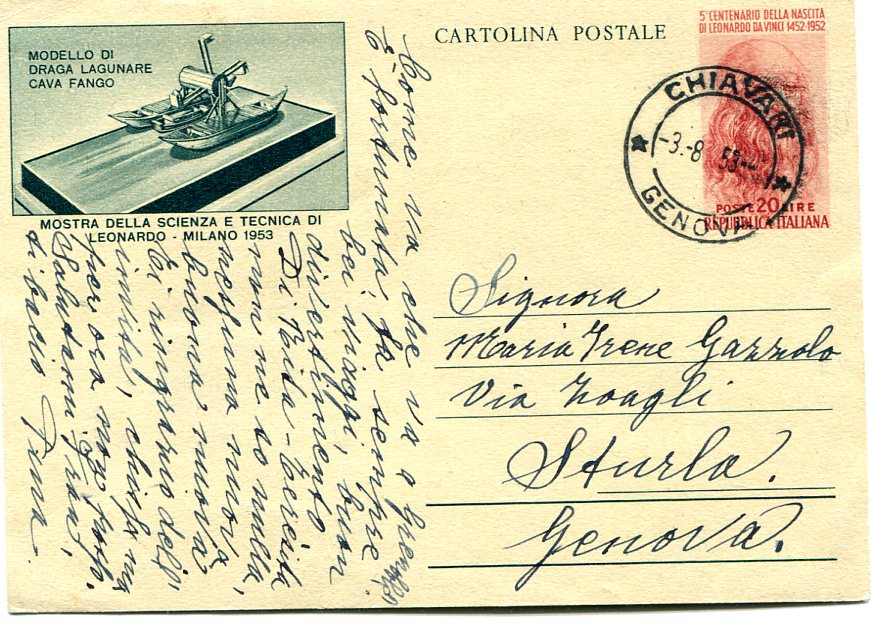 MODELLO DI
DRAGA LAGUNARE
CAVA FANGO
MOSTRA DELLA SCIENZA E TECNICA DI
LEONARDO - MILANO 1953
CARTOLINA POSTALE
5° CENTENARIO DELLA NASCITA
DI LEONARDO DA VINCI 1452-1952
POSTE 20 LIRE
REPUBBLICA ITALIANA
CHIAVARI
-3.-8 53
GENOVA
Signora
Maria Irene Gazzolo
Via Zoagli
Sturla.
Genova.
Come va che va a
È fortunata, fa sempre
bei viaggi, buon
divertimento
Di Rita-
non ne so nulla,
nessuna nuova
buona nuova
Ti ringrazio dell'
invito, ma
per ora non
Salutami
di bacio Irma.